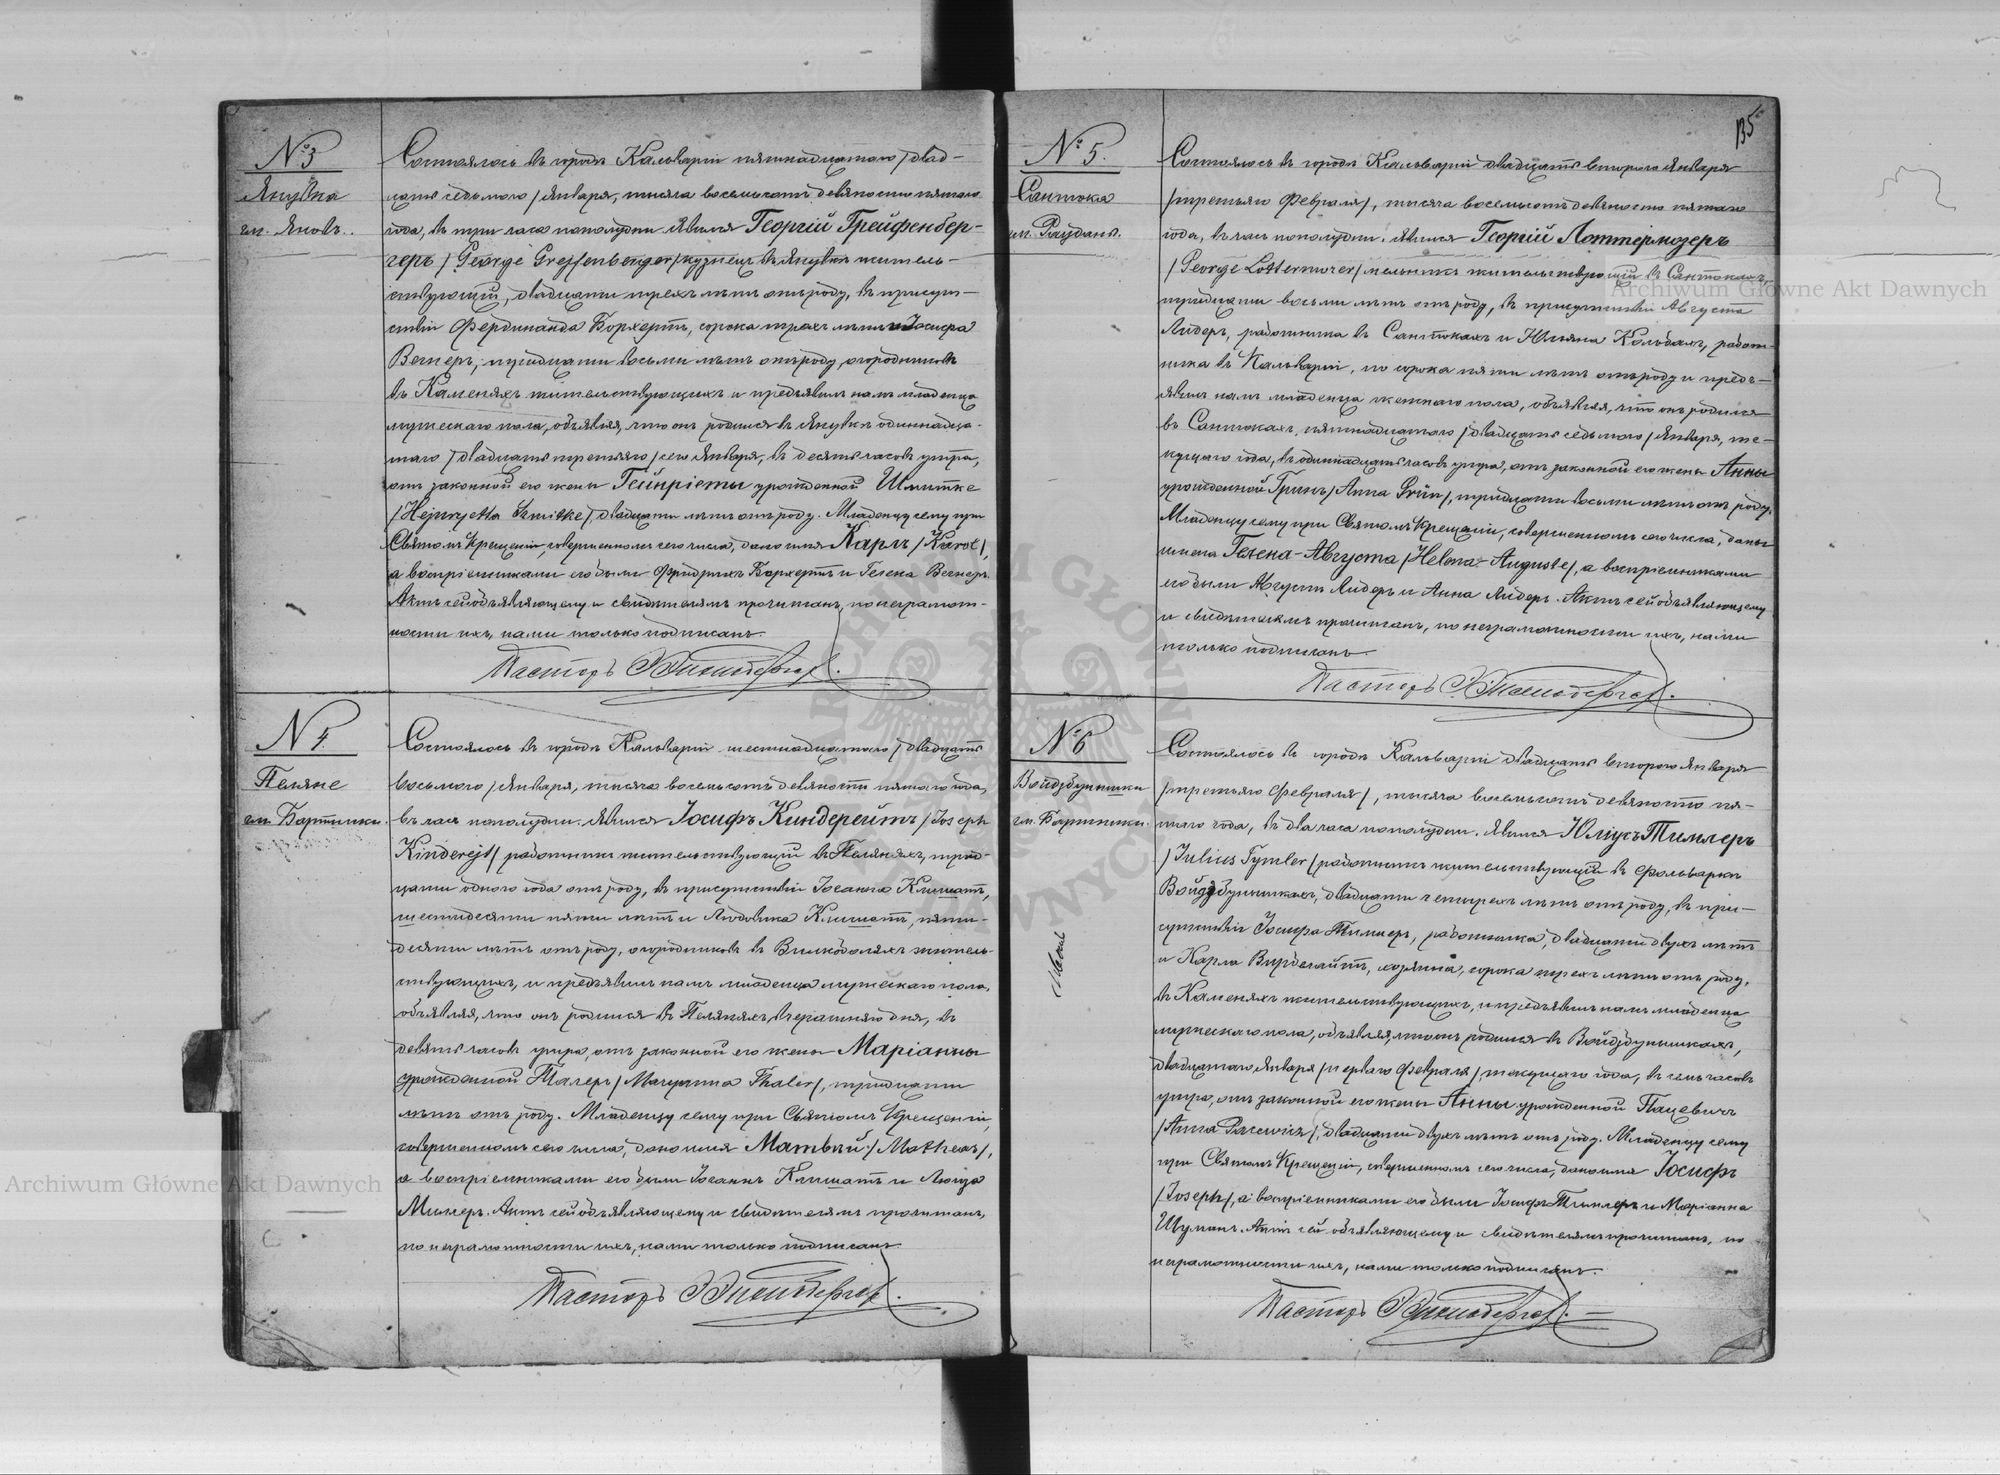 № 3
Янувка
гм. Яновъ.
Состоялось въ городѣ Кальваріи пятнадцатаго /двад-
цать седьмого/ Января, тысяча восемьсотъ девяносто пятаго
года, въ три часа пополудни. Явился Георгій Грейфенбер-
геръ /George Grejfenberger/ кузнецъ въ Янувкѣ житель-
ствующій, двадцати трехъ лѣтъ отъ роду, въ присут-
ствіи Фердинанда Борхертъ, сорока трехъ лѣтъ и Іосифа
Вегнеръ, тридцати восьми лѣтъ отъ роду, огородниковъ
въ Каменяхъ жительствующихъ и предъявилъ намъ младенца
мужескаго пола, объявляя, что онъ родился въ Янувкѣ одиннадца-
таго /двадцать третьяго/ сего Января, въ десять часовъ утра,
отъ законной его жены Гейнріеты урожденной Шмитке
/Hejnryetta Szmitke/, двадцати лѣтъ отъ роду. Младенцу сему при
Святомъ Крещеніи, совершенномъ сего числа, дано имя Карлъ /Karol/,
а воспріемниками его были Фридрихъ Борхертъ и Гелена Вегнеръ.
Актъ сей объявляющему и свидѣтелямъ прочитанъ, по неграмот-
ности ихъ, нами только подписанъ.
Пасторъ
№ 4.
Пеляне
гм. Бартники.
Состоялось въ городѣ Кальваріи шестнадцатаго /двадцать
восьмого/ Января, тысяча восемьсотъ девяносто пятаго года,
въ часъ пополудни. Явился Іосифъ Киндерейтъ /Joseph
Kinderejt/ работникъ жительствующій въ Пеляняхъ, трид-
цати одного года отъ роду, въ присутствіи Іоганна Климатъ,
шестидесяти пяти лѣтъ и Людвика Климатъ, пяти-
десяти лѣтъ отъ роду, огородниковъ въ Вилкоболяхъ житель-
ствующихъ, и предъявилъ намъ младенца мужескаго пола,
объявляя, что онъ родился въ Пеляняхъ, вчерашняго дня, въ
девять часовъ утра, отъ законной его жены Маріанны
урожденной Талеръ /Maryanna Thaler/, тридцати
лѣтъ отъ роду. Младенцу сему при Святомъ Крещеніи,
совершенномъ сего числа, дано имя Матвѣй /Matheas/,
а воспріемниками его были Іоганнъ Климатъ и Луиза
Миллеръ. Актъ сей объявляющему и свидѣтелямъ прочитанъ,
по неграмотности ихъ, нами только подписанъ.
Пасторъ
135
№ 5.
Сантока
гм. Раудань.
Состоялось въ городѣ Кальваріи двадцать второго Января
/третьяго Февраля/, тысяча восемьсотъ девяносто пятаго
года, въ часъ пополудни. Явился Георгій Лоттермозеръ
/George Lottermozer/ мельникъ жительствующій въ Сантокахъ,
тридцати восьми лѣтъ отъ роду, въ присутствіи Августа
Лидеръ, работника въ Сантокахъ и Юльяна Кольбахъ, работ-
ника въ Кальваріи, по сорока пяти лѣтъ отъ роду и предъ-
явилъ намъ младенца женскаго пола, объявляя, что онъ родился
въ Сантокахъ, пятнадцатаго /двадцать седьмого/ Января, те-
кущаго года, въ одиннадцать часовъ утра, отъ законной его жены Анны
урожденной Гринъ /Anna Grün/, тридцати восьми лѣтъ отъ роду.
Младенцу сему при Святомъ Крещеніи, совершенномъ сего числа, даны
имена Гелена-Августа /Helena-Auguste/, а воспріемниками
его были Августъ Лидеръ и Анна Лидеръ. Актъ сей объявляющему
и свидѣтелямъ прочитанъ, по неграмотности ихъ, нами
только подписанъ.
Пасторъ
№ 6
Войздбунишки
гм. Бартники.
Состоялось въ городѣ Кальваріи двадцать второго Января
/третьяго Февраля/, тысяча восемьсотъ девяносто пя-
таго года, въ два часа пополудни. Явился Юліусъ Тимлеръ
/Julius Tymler/ работникъ жительствующій въ фольваркѣ
Войздбунишкахъ, двадцати четырехъ лѣтъ отъ роду, въ при-
сутствіи Іосифа Тимлеръ, работника, двадцати двухъ лѣтъ
и Карла Вирбелайтъ, хозяина, сорока трехъ лѣтъ отъ роду,
въ Каменяхъ жительствующихъ, и предъявилъ намъ младенца
мужескаго пола, объявляя, что онъ родился въ Войздбунишкахъ,
двадцатаго Января /перваго Февраля/, текущаго года, въ семь часовъ
утра, отъ законной его жены Анны урожденной Пацевичъ
/Anna Pacewicz/, двадцати двухъ лѣтъ отъ роду. Младенцу сему
при Святомъ Крещеніи, совершенномъ сего числа, дано имя Іосифъ
/Joseph/, а воспріемниками его были Іосифъ Тимлеръ и Маріанна
Шуманъ. Актъ сей объявляющему и свидѣтелямъ прочитанъ, по
неграмотности ихъ, нами только подписанъ.
Пасторъ
Archiwum Główne Akt Dawnych
Archiwum Główne Akt Dawnych